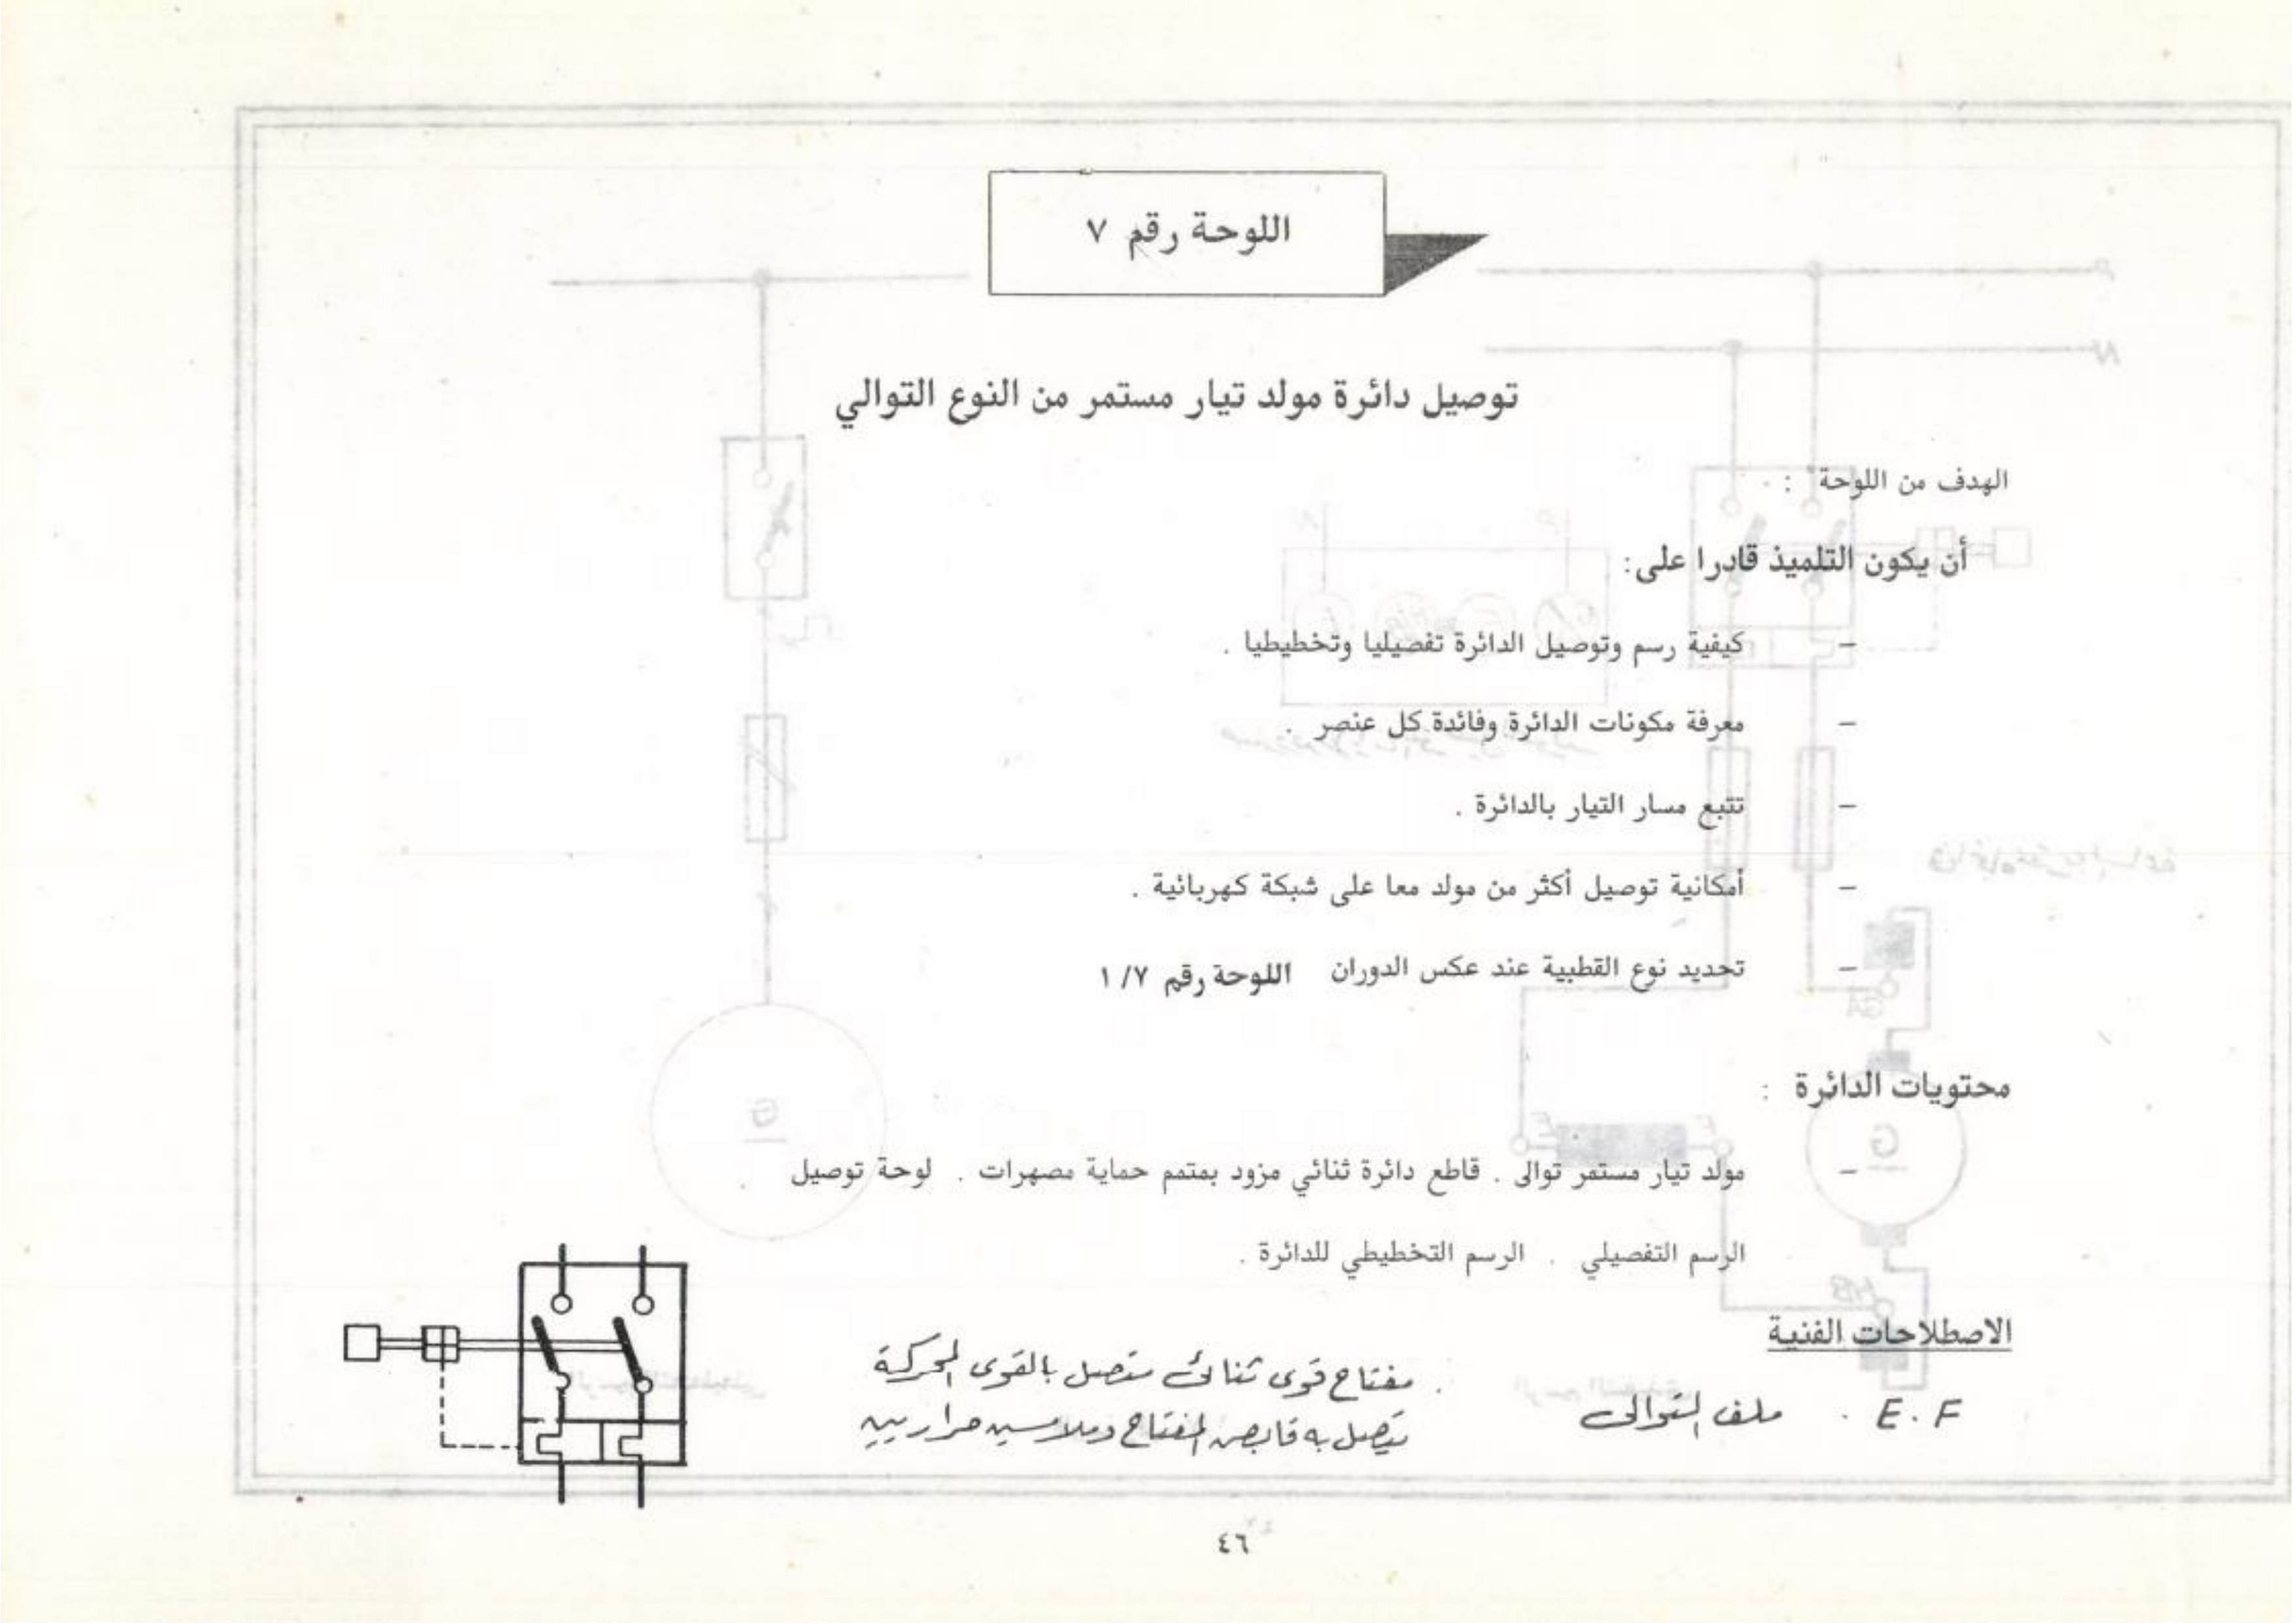 اللوحة رقم ٧
توصيل دائرة مولد تيار مستمر من النوع التوالي
الهدف من اللوحة :
أن يكون التلميذ قادرا على:
– كيفية رسم وتوصيل الدائرة تفصيليا وتخطيطيا .
– معرفة مكونات الدائرة وفائدة كل عنصر .
– تتبع مسار التيار بالدائرة .
– أمكانية توصيل أكثر من مولد معا على شبكة كهربائية .
– تحديد نوع القطبية عند عكس الدوران اللوحة رقم ٧/ ١
محتويات الدائرة :
– مولد تيار مستمر توالى . قاطع دائرة ثنائي مزود بمتمم حماية مصهرات . لوحة توصيل .
الرسم التفصيلي . الرسم التخطيطي للدائرة .
الاصطلاحات الفنية
E . F . ملف التوالى
. مفتاح قوى ثنائى متصل بالقوى المحركة
يتصل به قابض المفتاح وملامسين حراريين
٤٦